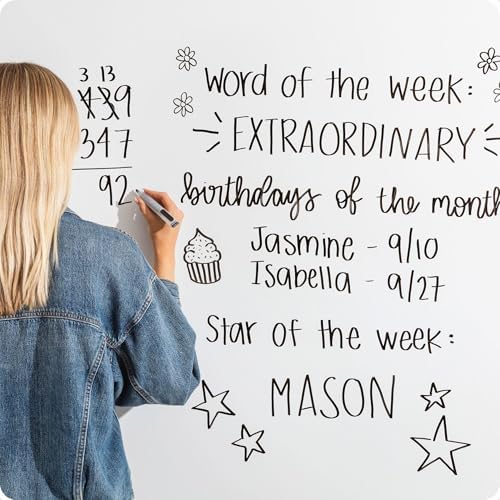 3 13
439
347
92
word of the week:
EXTRAORDINARY
birthdays of the month
Jasmine - 9/10
Isabella - 9/27
Star of the week:
MASON